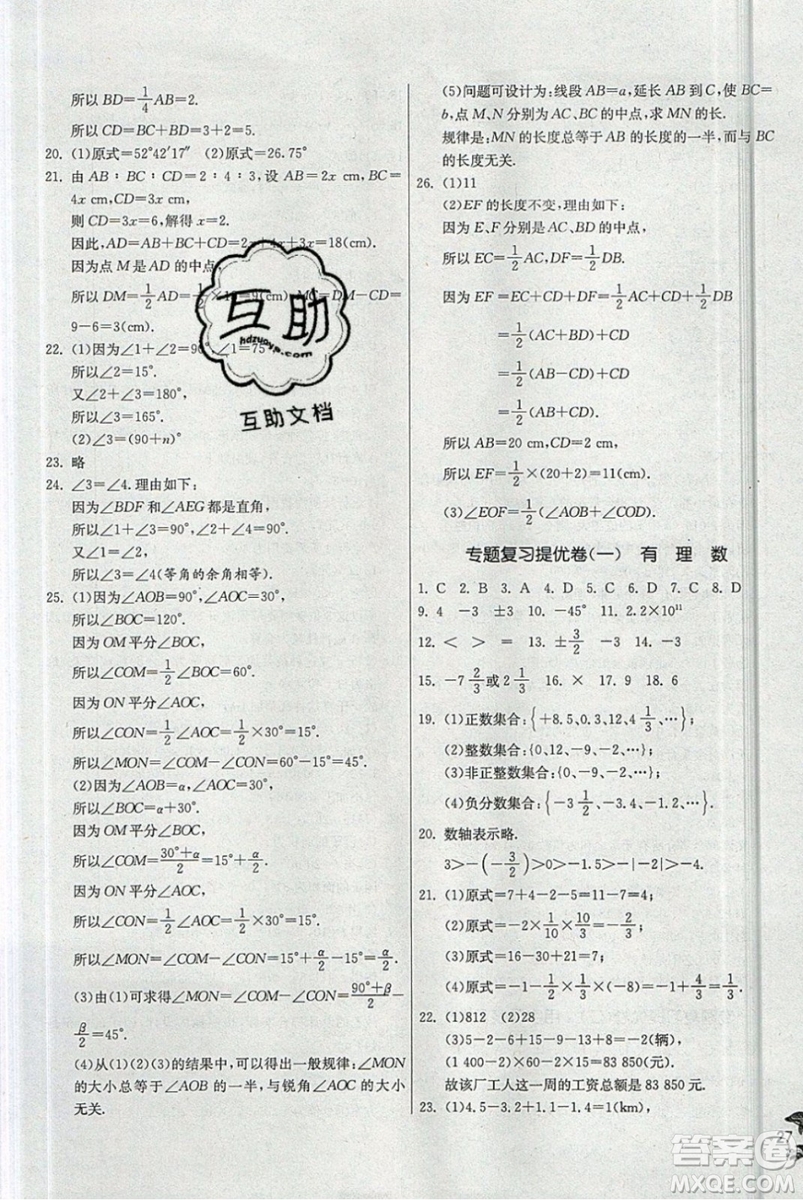 所以 BD=1/4AB=2.
所以 CD=BC+BD=3+2=5.
20. (1)原式=52°42′17″ (2)原式=26.75°
21. 由 AB∶BC∶CD=2∶4∶3,设 AB=2x cm,BC=
4x cm,CD=3x cm,
则 CD=3x=6,解得 x=2.
因此,AD=AB+BC+CD=2x+4x+3x=18(cm).
因为点 M 是 AD 的中点,
所以 DM=1/2AD=1/2×18=9(cm) MC=DM-CD=
9-6=3(cm).
22. (1)因为∠1+∠2=90°,∠1=75°
所以∠2=15°.
又∠2+∠3=180°,
所以∠3=165°.
(2)∠3=(90+n)°
23. 略
24. ∠3=∠4.理由如下:
因为∠BDF 和∠AEG 都是直角,
所以∠1+∠3=90°,∠2+∠4=90°.
又∠1=∠2,
所以∠3=∠4(等角的余角相等).
25. (1)因为∠AOB=90°,∠AOC=30°,
所以∠BOC=120°.
因为 OM 平分∠BOC,
所以∠COM=1/2∠BOC=60°.
因为 ON 平分∠AOC,
所以∠CON=1/2∠AOC=1/2×30°=15°.
所以∠MON=∠COM-∠CON=60°-15°=45°.
(2)因为∠AOB=α,∠AOC=30°,
所以∠BOC=α+30°.
因为 OM 平分∠BOC,
所以∠COM=(30°+α)/2=15°+α/2.
因为 ON 平分∠AOC,
所以∠CON=1/2∠AOC=1/2×30°=15°.
所以∠MON=∠COM-∠CON=15°+α/2-15°=α/2.
(3)由(1)可求得∠MON=∠COM-∠CON=(90°+β)/2-
β/2=45°.
(4)从(1)(2)(3)的结果中,可以得出一般规律:∠MON
的大小总等于∠AOB 的一半,与锐角∠AOC 的大小
无关.
(5)问题可设计为:线段 AB=a,延长 AB 到 C,使 BC=
b,点 M、N 分别为 AC、BC 的中点,求 MN 的长.
规律是:MN 的长度总等于 AB 的长度的一半,而与 BC
的长度无关.
26. (1)11
(2)EF 的长度不变,理由如下:
因为 E、F 分别是 AC、BD 的中点,
所以 EC=1/2AC,DF=1/2DB.
因为 EF=EC+DF+CD=1/2AC+1/2DB+CD
=1/2(AC+BD)+CD
=1/2(AB-CD)+CD
=1/2(AB+CD)
所以 AB=20 cm,CD=2 cm,
所以 EF=1/2×(20+2)=11(cm)
(3)∠EOF=1/2(∠AOB+∠COD).
专题复习提优卷(一) 有 理 数
1. C 2. B 3. A 4. D 5. C 6. D 7. C 8. D
9. 4 -3 ±3 10. -45° 11. 2.2×10¹¹
12. < > = 13. ±3/2 -3 14. -3
15. -7 2/3或2 1/3 16. × 17. 9 18. 6
19. (1)正数集合:{+8.5,0.3,12,4 1/3,…};
(2)整数集合:{0,12,-9,-2,…};
(3)非正整数集合:{0,-9,-2,…};
(4)负分数集合:{-3 1/2,-3.4,-1.2,…}
20. 数轴表示略.
3>-(-3/2)>0>-1.5>-|-2|>-4.
21. (1)原式=7+4-2-5=11-7=4;
(2)原式=-2×1/10×10/3=-2/3;
(3)原式=16-30+21=7;
(4)原式=-1-1/2×1/3×(-8)=-1+4/3=1/3
22. (1)812 (2)28
(3)5-2-6+15-9-13+8=-2(辆),
(1 400-2)×60-2×15=83 850(元).
故该厂工人这一周的工资总额是 83 850 元.
23. (1)4.5-3.2+1.1-1.4=1(km),
27
互助
hdzuoye.com
互助文档
答案圈
MXQE.COM